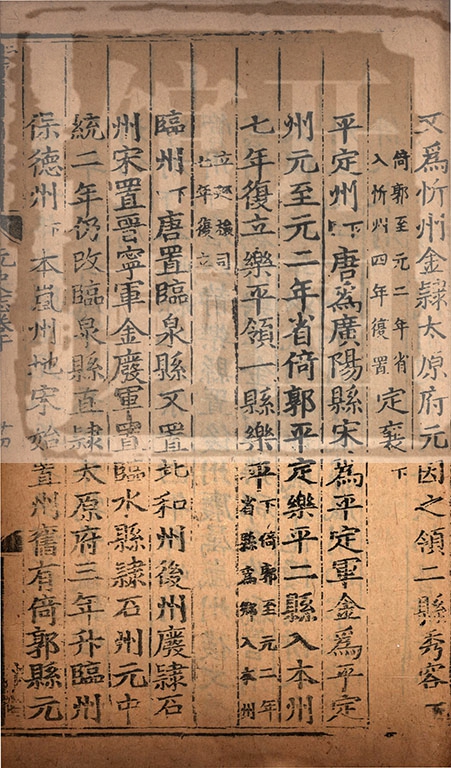 又爲忻州金隷太原府元因之領二縣秀容下
倚郭至元二年省
入忻州四年復置
定襄下
平定州下唐爲廣陽縣宋爲平定軍金爲平定
州元至元二年省倚郭平定樂平二縣入本州
七年復立樂平領一縣樂平
下倚郭至元二年
省縣爲鄉入本州
立巡檢司
七年復立
臨州下唐置臨泉縣又置北和州後州廢隷石
州宋置晉寧軍金廢軍置臨水縣隷石州元中
統二年仍改臨泉縣直隷太原府三年升臨州
保德州下本嵐州地宋始置州舊有倚郭縣元